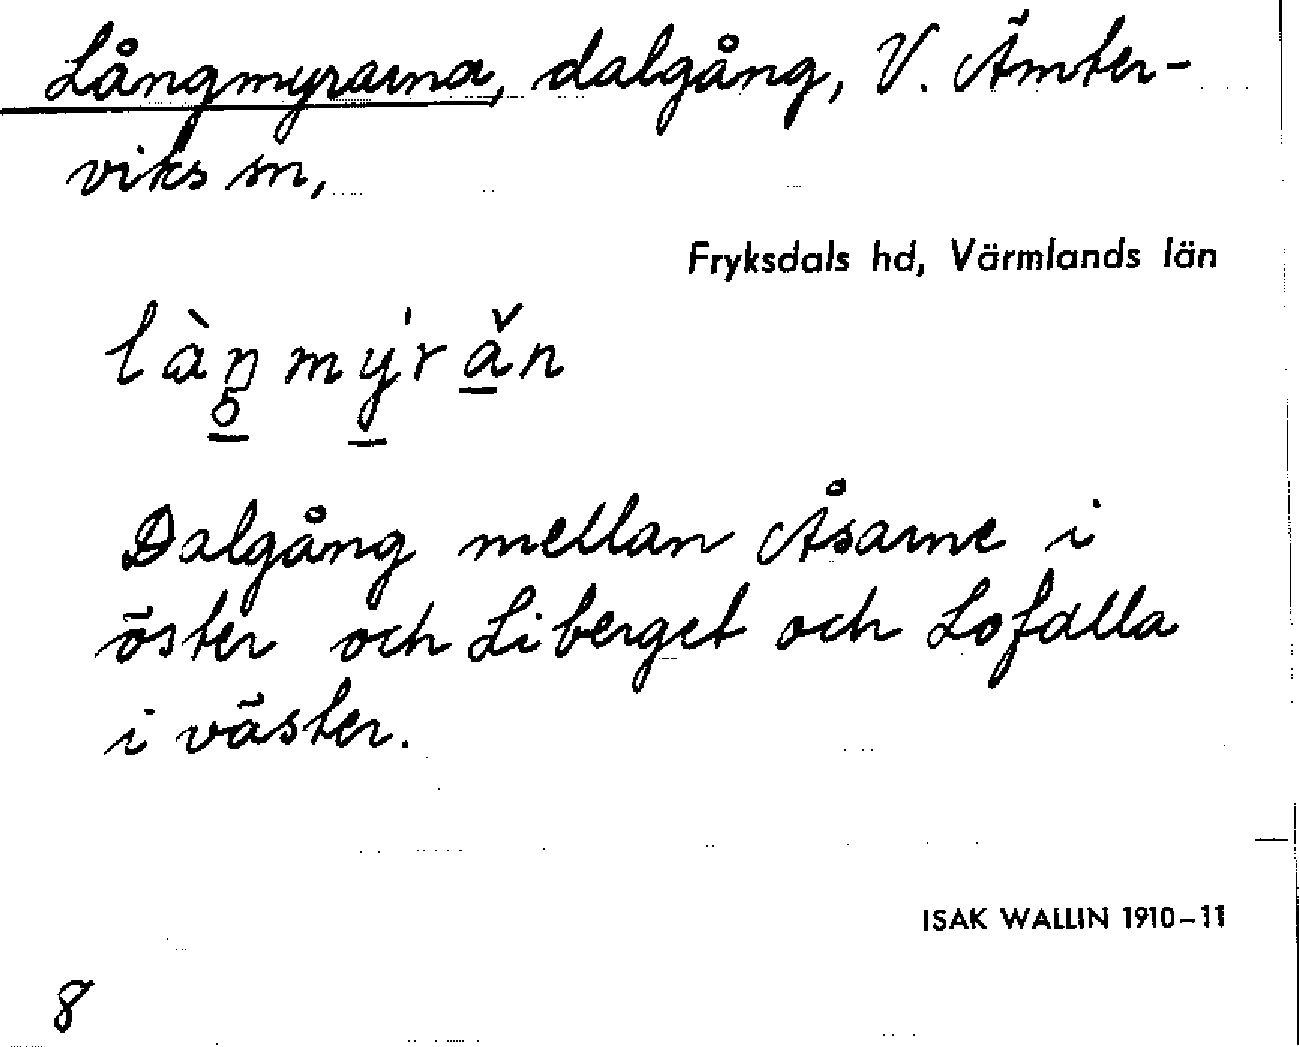 Långmyrarna, dalgång, V. Ämter-
viks sn,
Fryksdals hd, Värmlands län
làŋ my̍r ǎn
Dalgång mellan Åsarne i
öster och Liberget och Lofalla
i väster.
ISAK WALLIN 1910-11
8